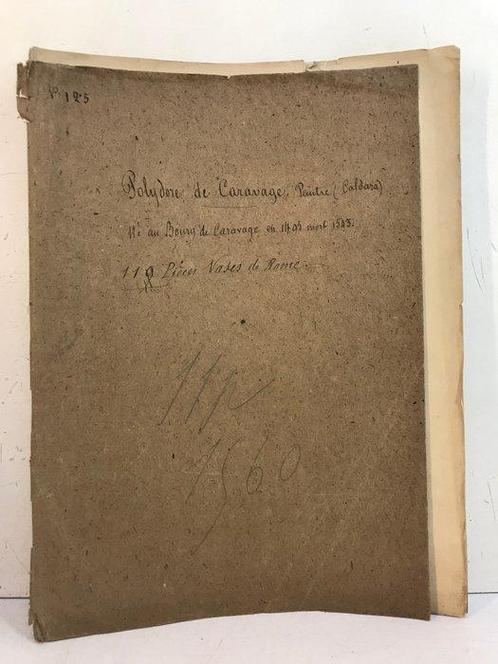 Nº 125
Polydore de Caravage, Peintre (Caldara)
Né au Bourg de Caravage en 1495 mort 1543.
Pièces Vases de Rome.
1560